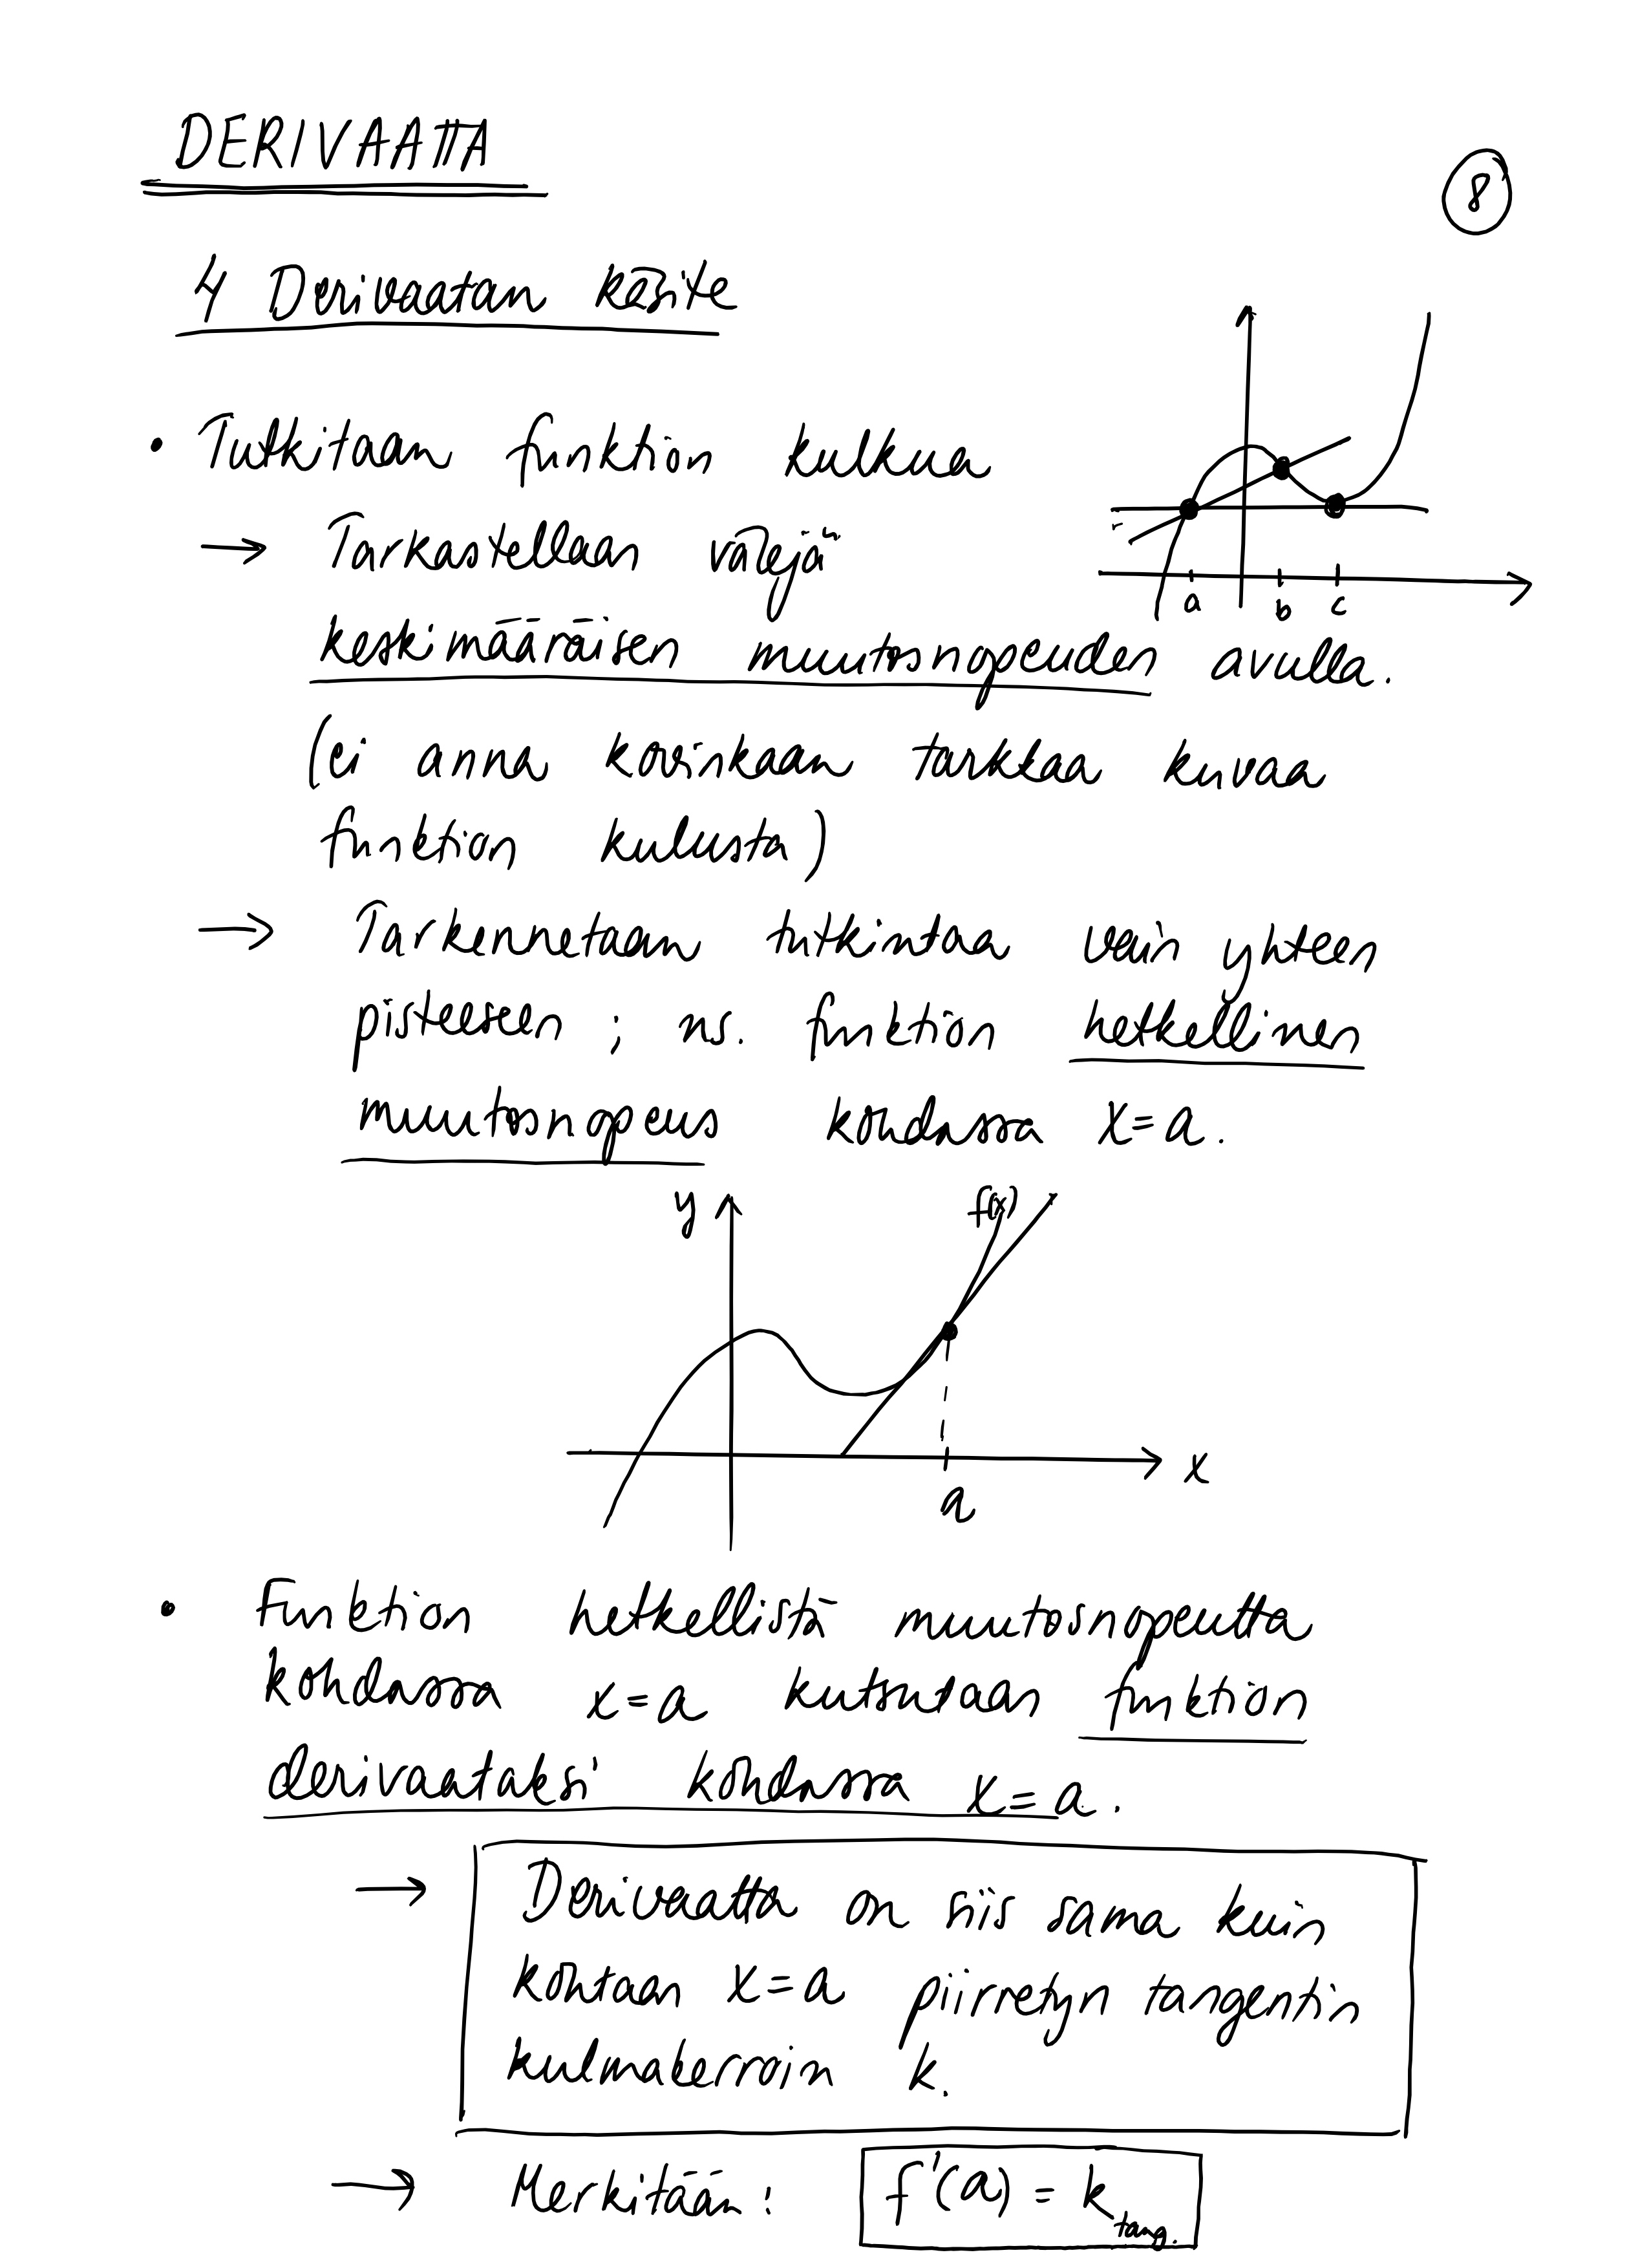 DERIVAATTA
8
4 Derivaatan käsite
• Tutkitaan funktion kulkua
→ Tarkastellaan välejä
a b c
keskimääräisen muutosnopeuden avulla.
(ei anna kovinkaan tarkkaa kuvaa
funktion kulusta)
→ Tarkennetaan tutkintaa vain yhteen
pisteeseen ; ns. funktion hetkellinen
muutosnopeus kohdassa x=a.
y f(x)
x
a
• Funktion hetkellistä muutosnopeutta
kohdassa x=a kutsutaan funktion
derivaataksi kohdassa x=a.
→ Derivaatta on siis sama kuin
kohtaan x=a piirretyn tangentin
kulmakerroin k.
→ Merkitään: f'(a) = k tang.